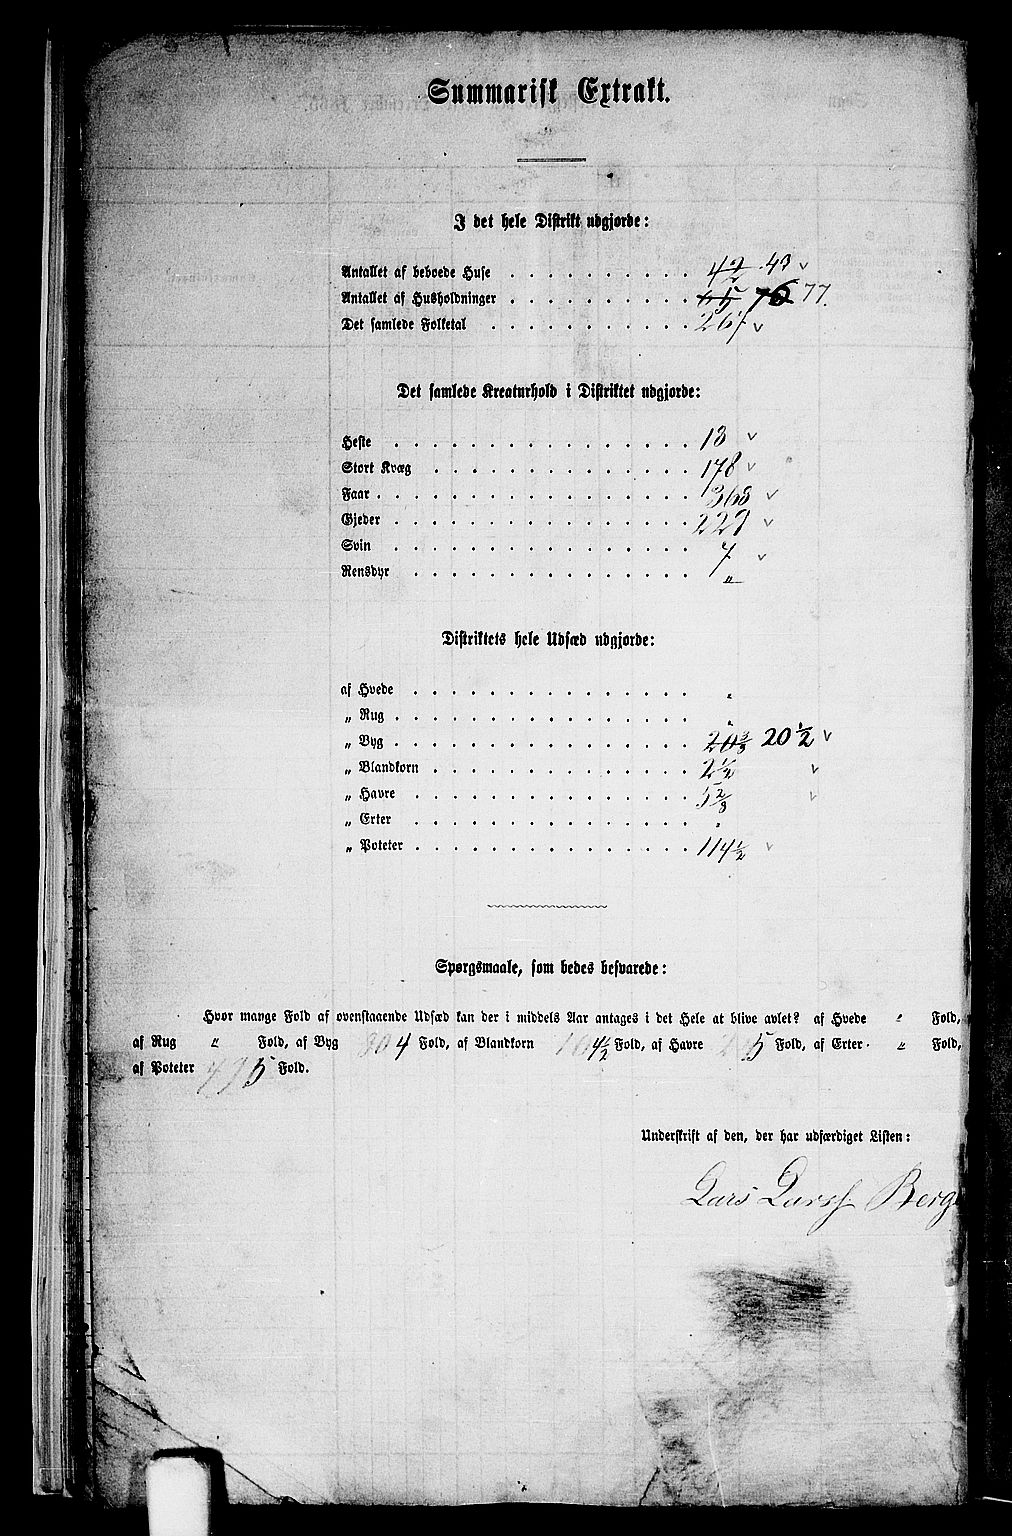 Summarisk Extrakt.
I det hele Distrikt udgjorde:
Antallet af beboede Huse . . . . . . . . . . 42 43 v
Antallet af Husholdninger . . . . . . . . . . 65 76 77.
Det samlede Folketal . . . . . . . . . . . 267 v
Det samlede Kreaturhold i Distriktet udgjorde:
Heste . . . . . . . . . . . . . . . . 13 v
Stort Kvæg . . . . . . . . . . . . . . 178 v
Faar . . . . . . . . . . . . . . . . . 368 v
Gjeder . . . . . . . . . . . . . . . . 229 v
Svin . . . . . . . . . . . . . . . . 7 v
Rensdyr . . . . . . . . . . . . . . . "
Distriktets hele Udsæd udgjorde:
af Hvede . . . . . . . . . . . . . . . "
„ Rug . . . . . . . . . . . . . . . . "
„ Byg . . . . . . . . . . . . . . . . 20 3/8 20 1/2 v
„ Blandkorn . . . . . . . . . . . . . . 2 1/2 v
„ Havre . . . . . . . . . . . . . . . 5 2/8 v
„ Erter . . . . . . . . . . . . . . . "
„ Poteter . . . . . . . . . . . . . . . 114 1/2 v
Spørgsmaale, som bedes besvarede:
Hvor mange Fold af ovenstaaende Udsæd kan der i middels Aar antages i det Hele at blive avlet? af Hvede " Fold,
af Rug " Fold, af Byg 4 Fold, af Blandkorn 4 1/2 Fold, af Havre 5 Fold, af Erter " Fold,
af Poteter 5 Fold.
Underskrift af den, der har udfærdiget Listen:
Lars Larss. Berge